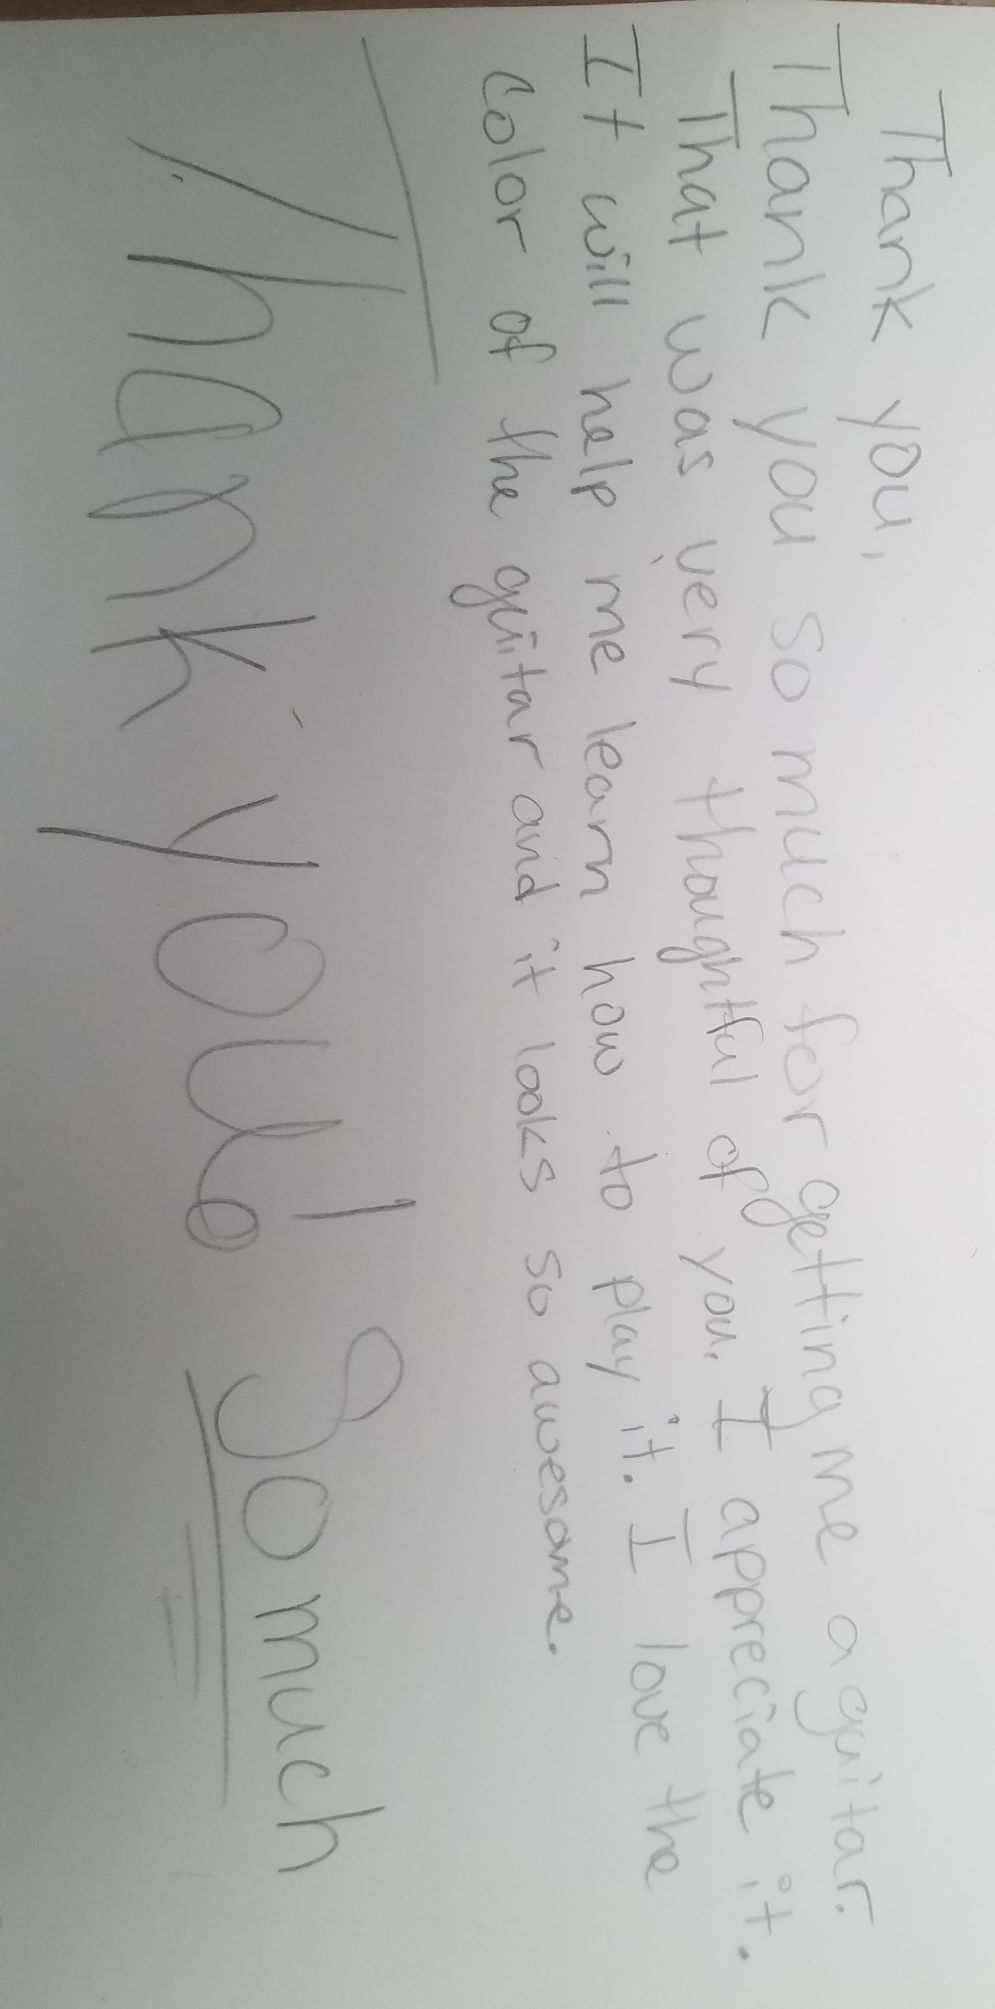 Thank you,
Thank you so much for getting me a guitar.
That was very thoughtful of you. I appreciate it.
It will help me learn how to play it. I love the
color of the guitar and it looks so awesome.
Thank you! So much